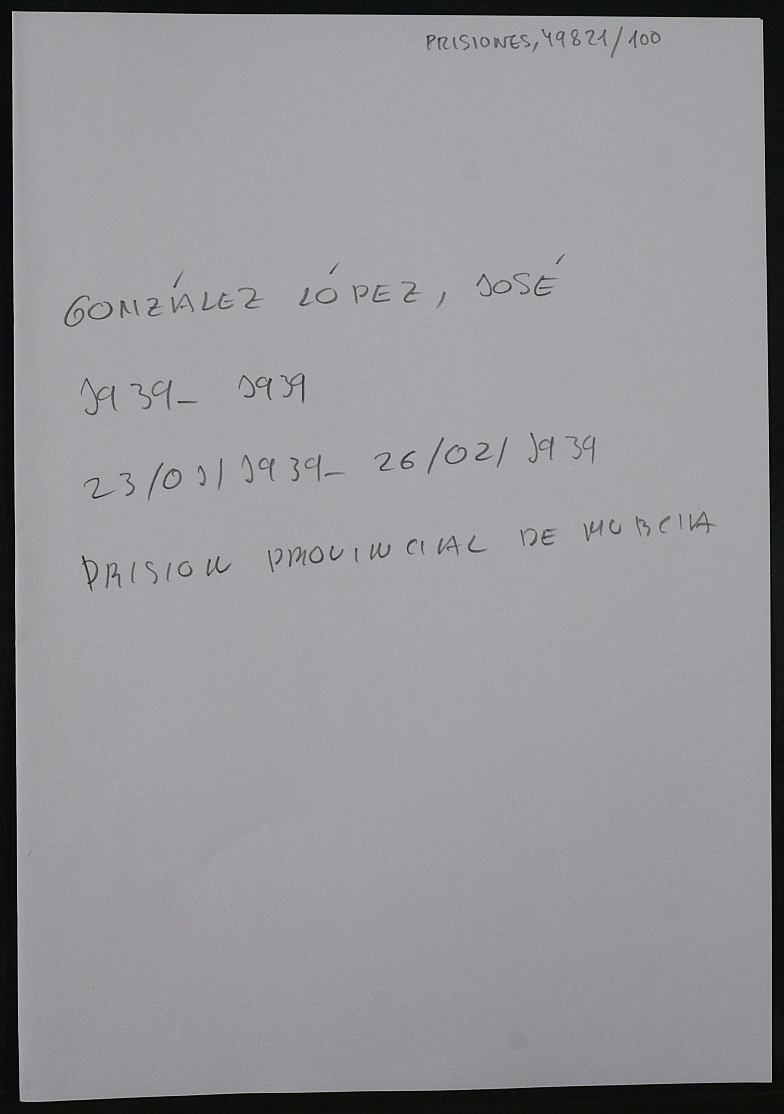 PRISIONES, 49821/100
GONZÁLEZ LÓPEZ, JOSÉ
1939_ 1939
23/01/1939_ 26/02/1939
PRISION PROVINCIAL DE MURCIA